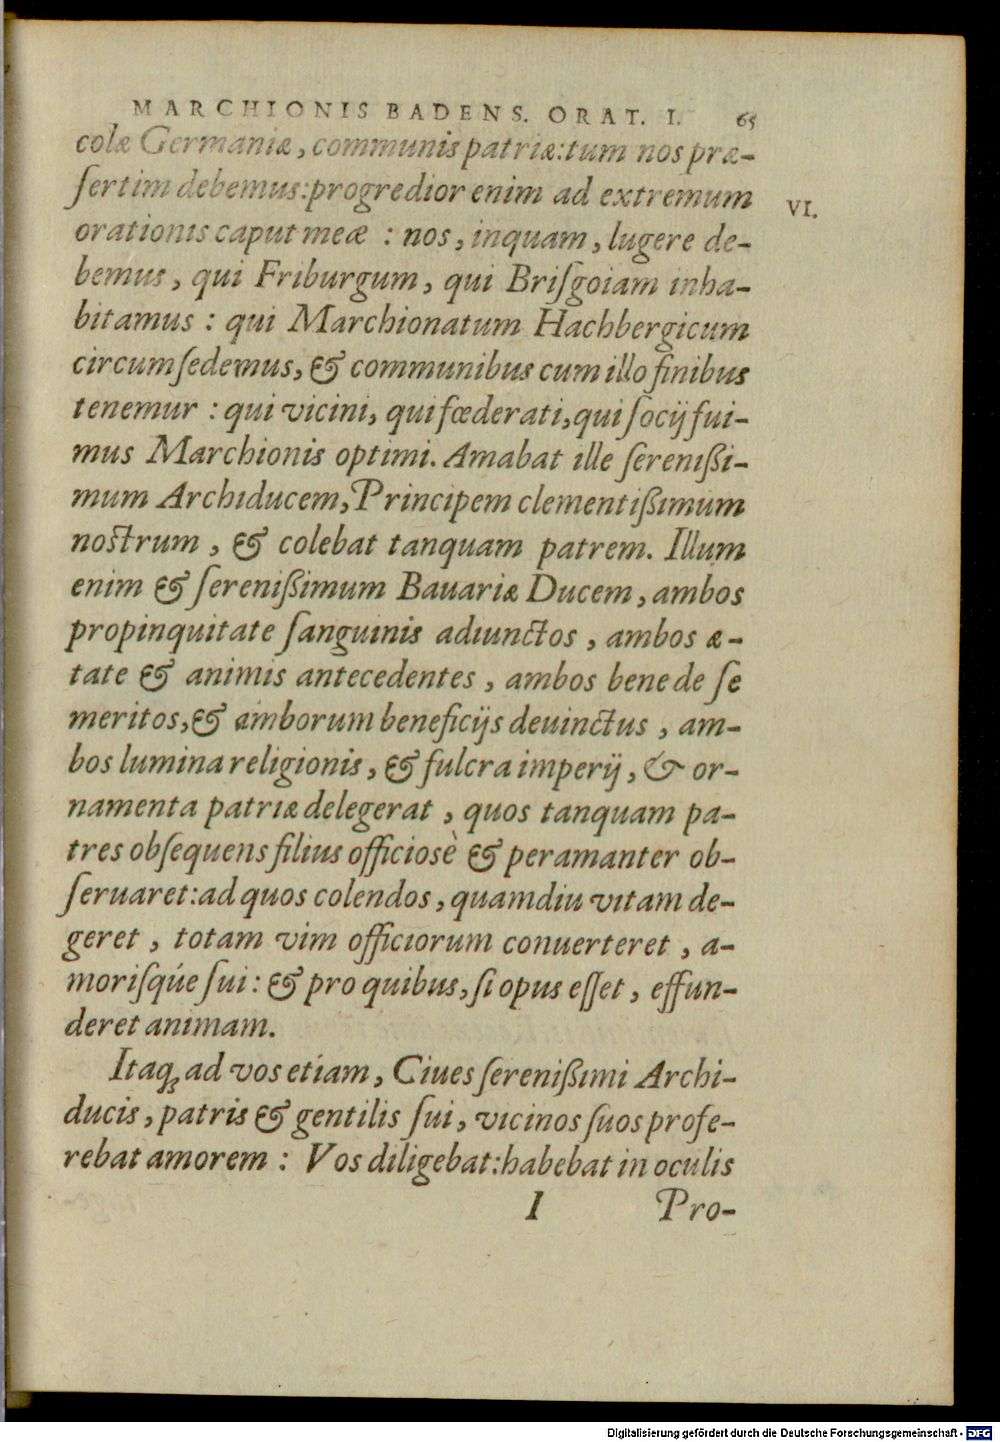 MARCHIONIS BADENS. ORAT. I. 65
colæ Germaniæ, communis patriæ: tum nos præ-
ſertim debemus: progredior enim ad extremum
VI.
orationis caput meæ : nos, inquam, lugere de-
bemus, qui Friburgum, qui Briſgoiam inha-
bitamus : qui Marchionatum Hachbergicum
circumſedemus, & communibus cum illo finibus
tenemur : qui vicini, qui fœderati, qui ſocij fui-
mus Marchionis optimi. Amabat ille ſerenißi-
mum Archiducem, Principem clementißimum
noſtrum, & colebat tanquam patrem. Illum
enim & ſerenißimum Bauariæ Ducem, ambos
propinquitate ſanguinis adiunctos, ambos æ-
tate & animis antecedentes, ambos bene de ſe
meritos, & amborum beneficijs deuinctus, am-
bos lumina religionis, & fulcra imperij, & or-
namenta patriæ delegerat, quos tanquam pa-
tres obſequens filius officiosè & peramanter ob-
ſeruaret: ad quos colendos, quamdiu vitam de-
geret, totam vim officiorum conuerteret, a-
moriſqúe ſui: & pro quibus, ſi opus eſſet, effun-
deret animam.
Itaqꝫ ad vos etiam, Ciues ſerenißimi Archi-
ducis, patris & gentilis ſui, vicinos ſuos profe-
rebat amorem : Vos diligebat: habebat in oculis
I Pro-
Digitalisierung gefördert durch die Deutsche Forschungsgemeinschaft - DFG